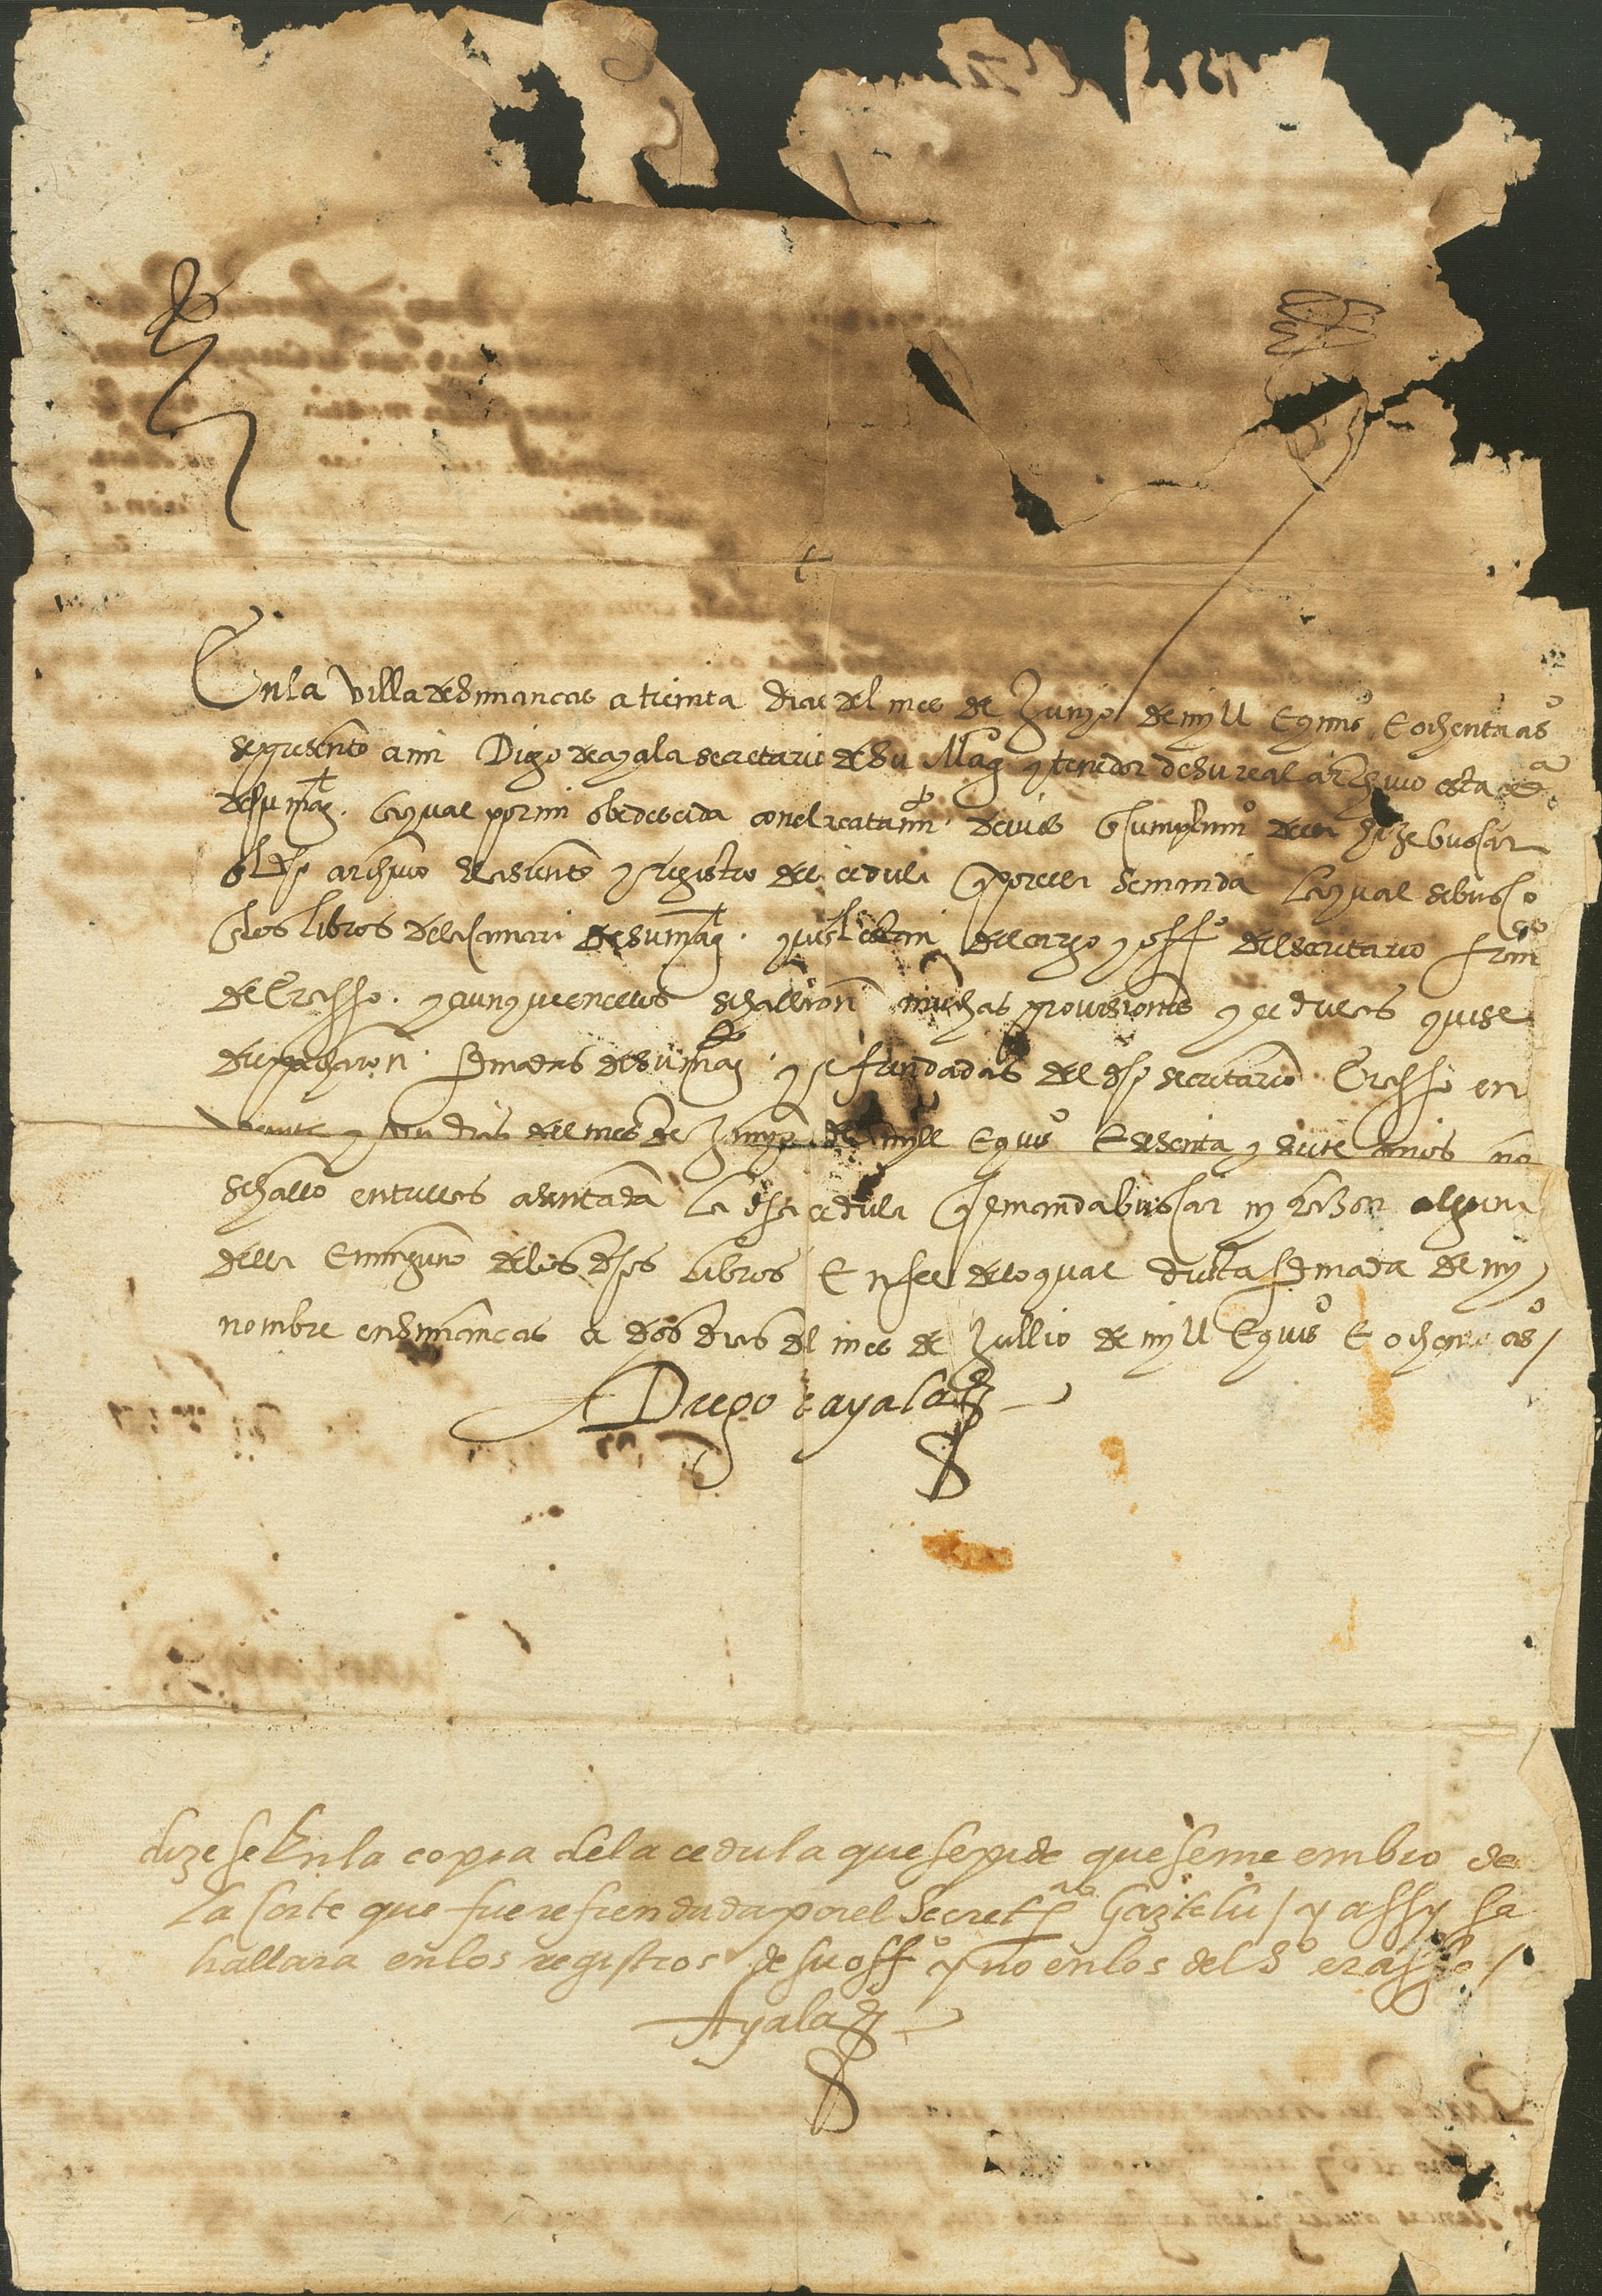 En la Villa de Simancas a treinta dias del mes de Junyo de myll E quis E ochenta as
se presento a mi Diego de ayala secretario de Su Magd y tenedor de su real archivo esta ceda
de su magt. la qual por mi obedescida con el acatamio. devido E cumplimio della hize buscar
E el dho archivo el asiento y registro de la cedula q por ella se manda la qual se busco
E los libros de la camara de su magt. que estan del cargo y offo del secretario franco
de Erasso. y aunque en ellos se hallaron muchas provisiones y cedulas que se
despacharon firmadas de su magd. y refrendadas del dho secretario Erasso en
veinte y dias del mes de Junyo de myll E quios E sesenta y siete años no
se hallo entrellas asentada la dha cedula q se manda buscar ny razon alguna
della E ninguno de los dhos libros E n fee de lo qual di esta firmada de my
nombre en Simancas a dos dias del mes de Jullio de myll E quios E ochenta as /
Diego de ayala
dize se En la copia de la cedula que se pide que se me embio de
la corte que fue refrendada por el Secretro Gaztelu / y assy se
hallara en los registros de su offo y no en los del So erasso /
Ayala